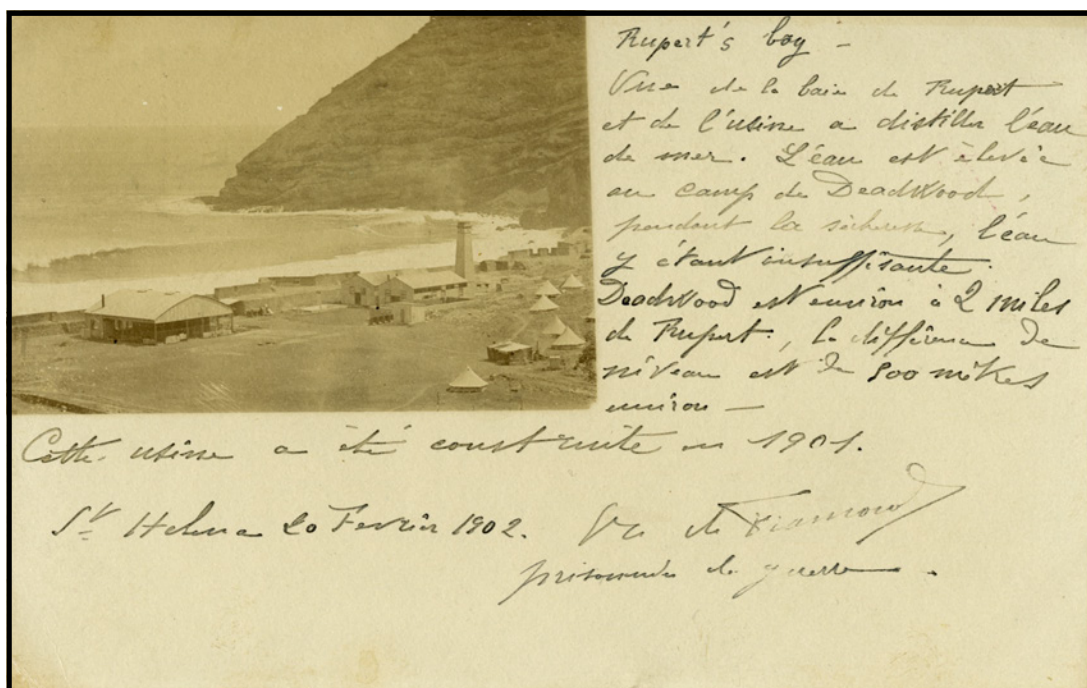 Rupert's bay -
Vue de la baie de Rupert
et de l'usine a distiller l'eau
de mer. L'eau est élevée
au camp de Deadwood,
pendant la sécheresse, l'eau
y étant insuffisante.
Deadwood est environ à 2 miles
de Rupert., la différence de
niveau est de 800 mètres
environ —
Cette usine a été construite en 1901.
St Helena 20 Fevrier 1902. Vte de
prisonnier de guerre.